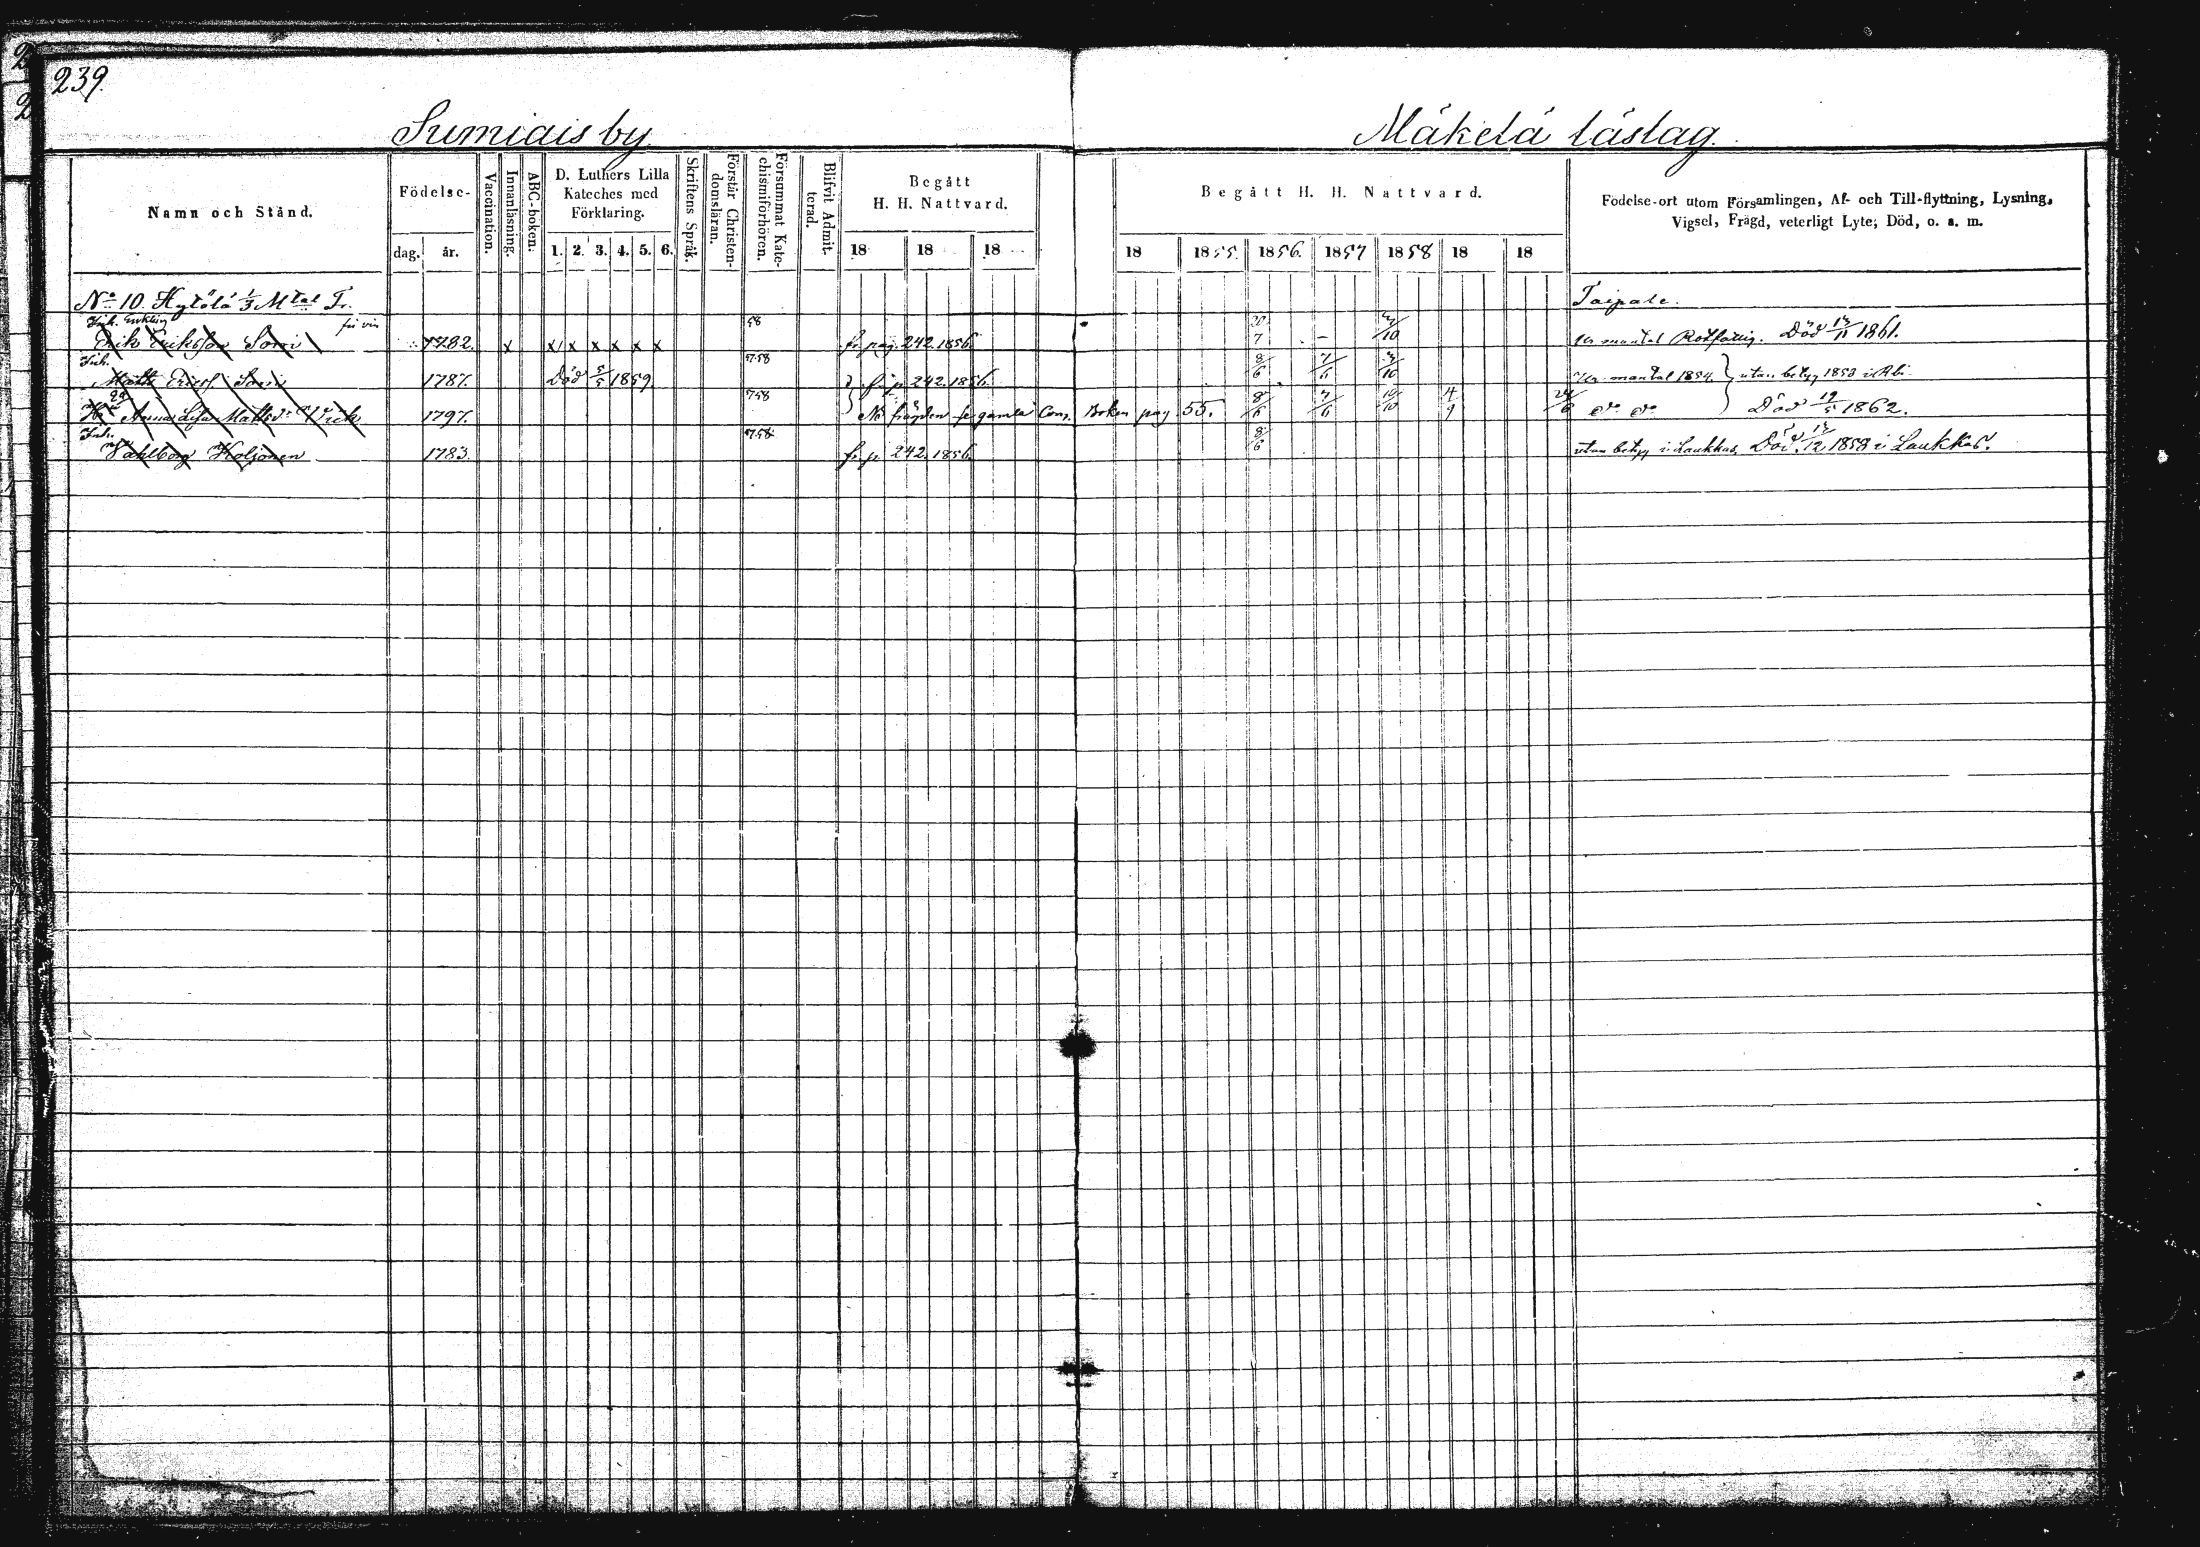 239.
Sumiais by
Mäkelä läslag.
Namn och Stånd.
Födelse-
dag. år.
Vaccination.
Innanläsning.
ABC-boken.
D. Luthers Lilla
Kateches med
Förklaring.
1. 2. 3. 4. 5. 6.
Skriftens Språk.
Förstår Christen-
domsläran.
Försummat Kate-
chismiförhören.
Blifvit Admit-
terad.
Begått
H. H. Nattvard.
18 18 18
Begått H. H. Nattvard.
18 1855. 1856. 1857 1858 18 18
Födelse-ort utom Församlingen, Af- och Till-flyttning, Lysning,
Vigsel, Frägd, veterligt Lyte; Död, o. s. m.
No 10. Hytölä 1/3 Mtal Tr. Taipale.
Inh. Enkling
Erik Eriksson Sorri 1782. x x x x x x x 58 fr. pag. 242. 1856. 7 - /10 Död 13/11 1861.
Inh.
Matts Ericss. Sorri 1787. Död 5/5 1859 57.58 fr. p. 242. 1856. 8/6 7/6 /10 Ur mantal 1854. utan betyg 1853
Anna Lisa Mattsdr 1797. 758 frägden se gamla Com. Boken pag 55. 8/6 7/6 10/10 4/9 do do Död 19/5 1862.
Inh.
Vahlborg Koljonen 1783. 57.58 fr. p. 242. 1856. 8/6 utan betyg i Laukkas. Död 13/12 1858 i Laukkas.